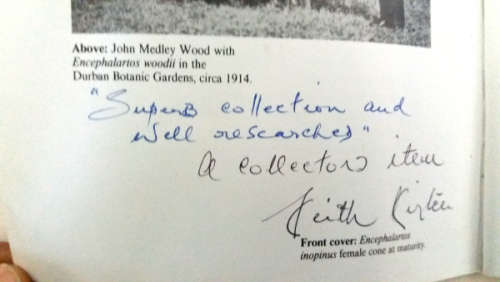 Above: John Medley Wood with
Encephalartos woodii in the
Durban Botanic Gardens, circa 1914.
"Superb collection and
well researched"
A collectors item
Keith Kirsten
Front cover: Encephalartos
inopinus female cone at maturity.